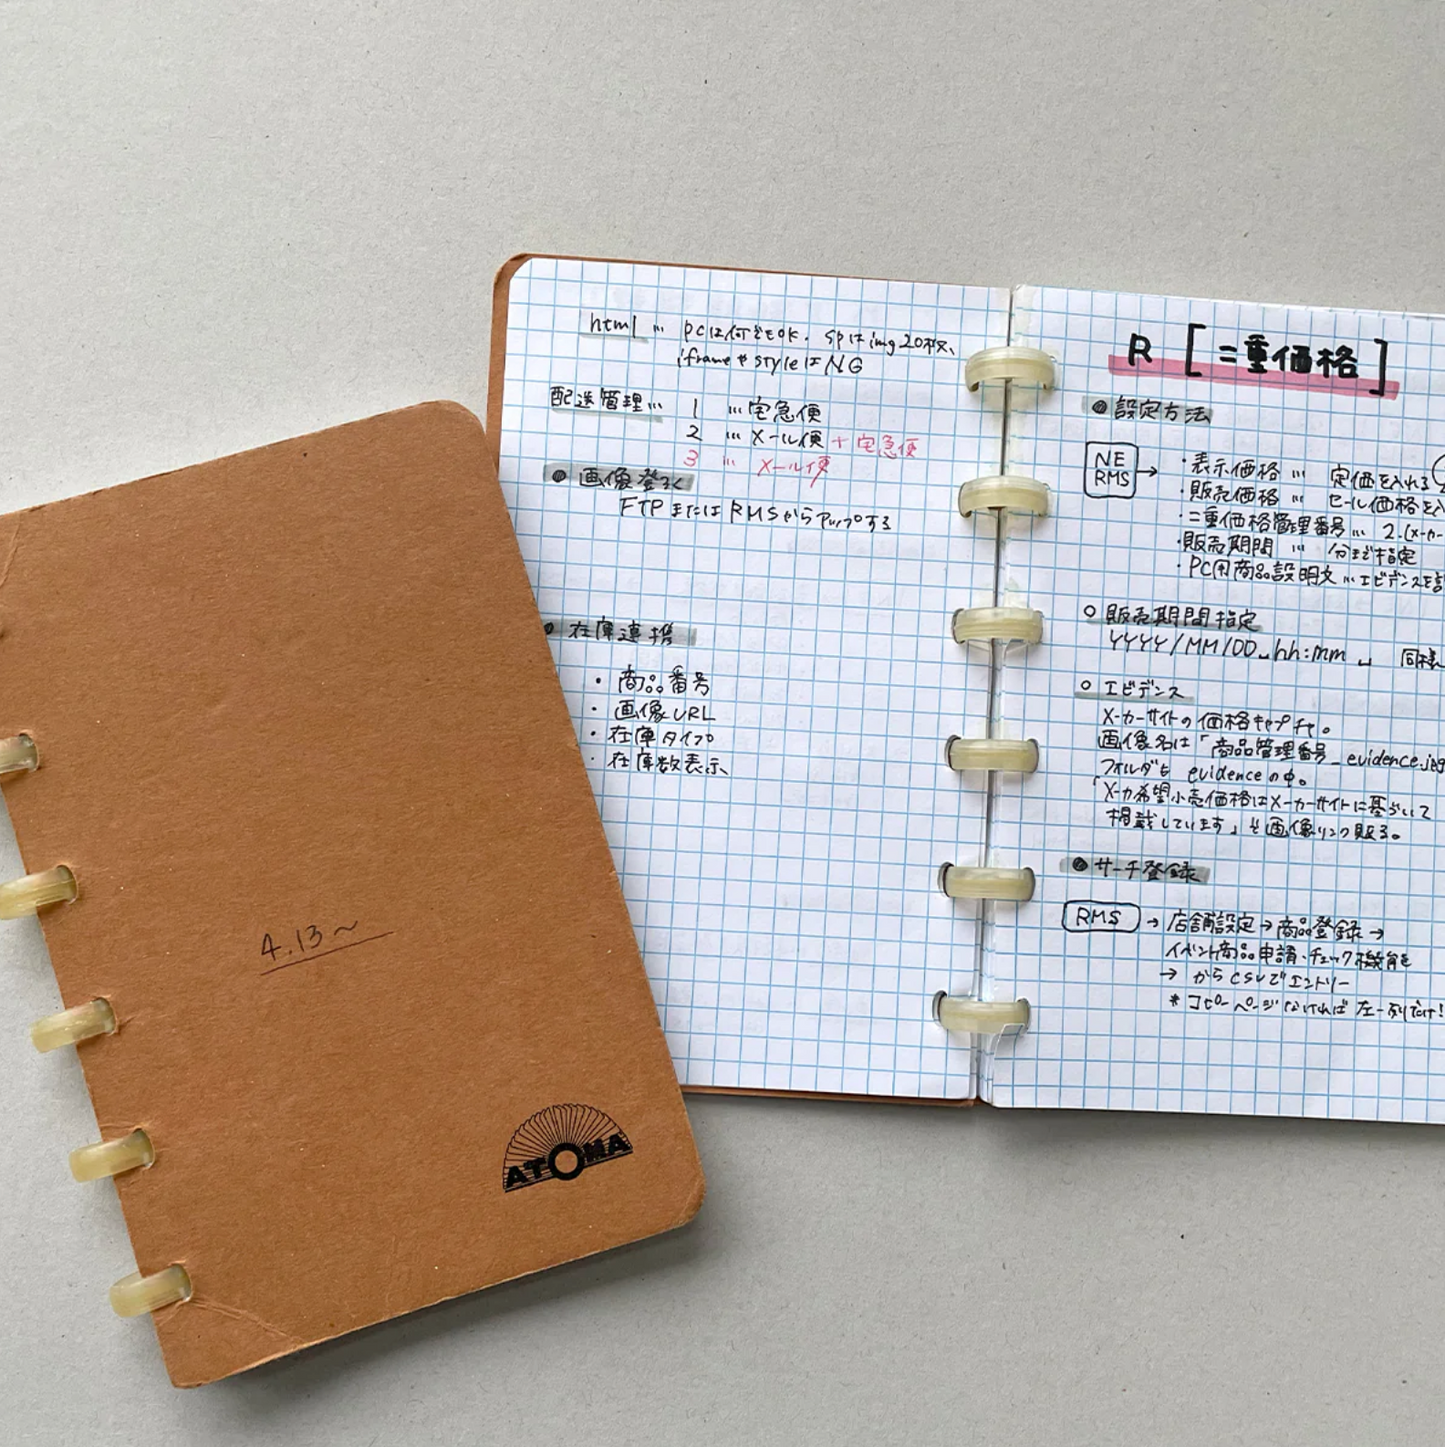 4.13〜
ATOMA
html … PCは何でもOK. SPはimg20枚、
iframeやstyleはNG
配送管理… 1 …宅急便
2 …メール便+宅急便
3 … メール便
● 画像登ろく
FTPまたはRMSからアップする
● 在庫連携
・商品番号
・画像URL
・在庫タイプ
・在庫数表示
R [二重価格]
● 設定方法
NE
RMS →
・表示価格 … 定価を入れる
・販売価格 … セール価格を入
・二重価格管理番号… 2.(メーカー
・販売期間 … 分まで指定
・PC用商品説明文…エビデンスを
○ 販売期間指定
YYYY/MM/DD␣hh:mm␣ 同様
○ エビデンス
メーカーサイトの価格キャプチャ。
画像名は「商品管理番号_evidence.jpg
フォルダも evidenceの中。
「メーカ希望小売価格はメーカーサイトに基づいて
掲載しています」と画像リンク貼る。
● サーチ登録
RMS → 店舗設定→商品登録→
イベント商品申請・チェック機能を
→ からCSVでエントリー
* コピーページなければ左一列だけ!